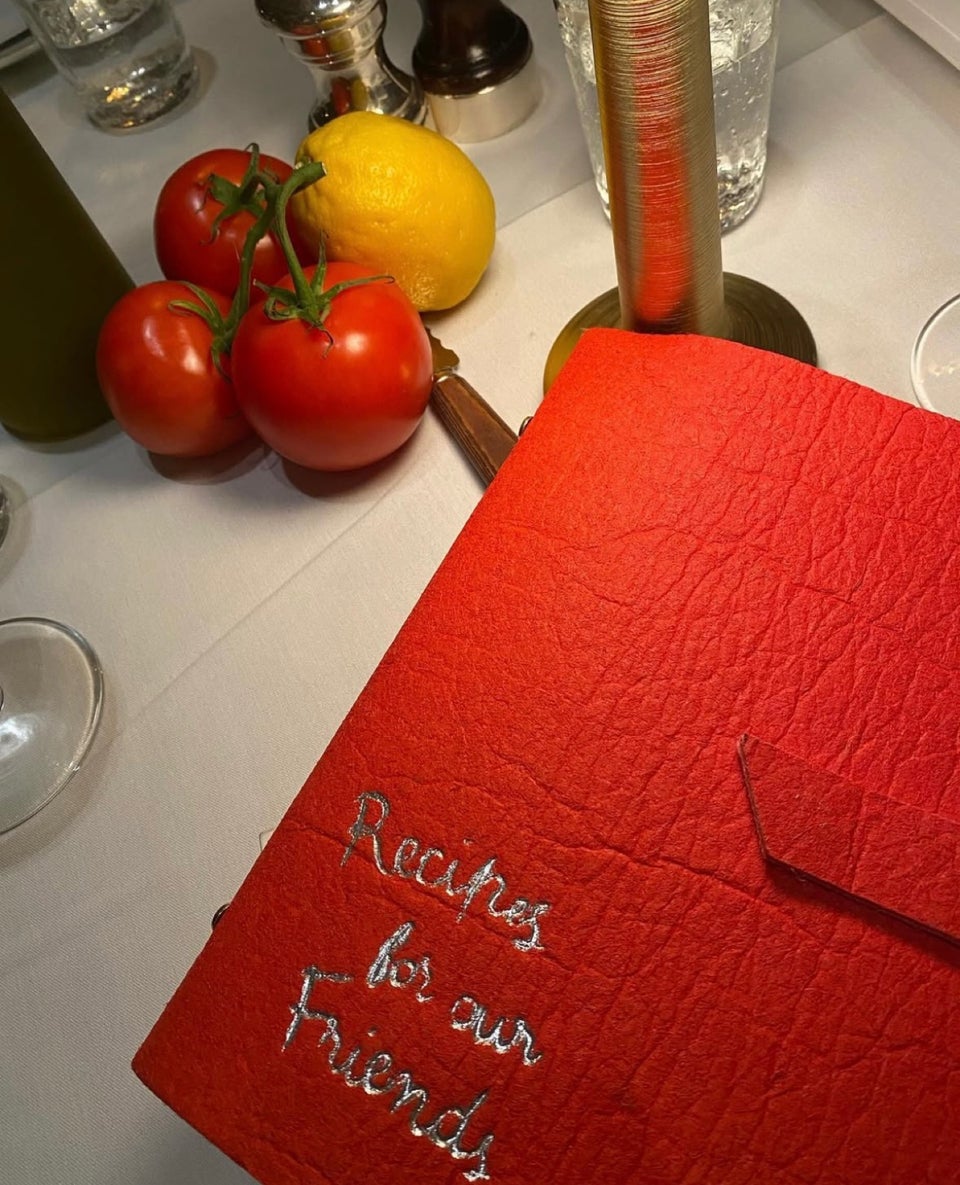 Recipes
for our
Friends